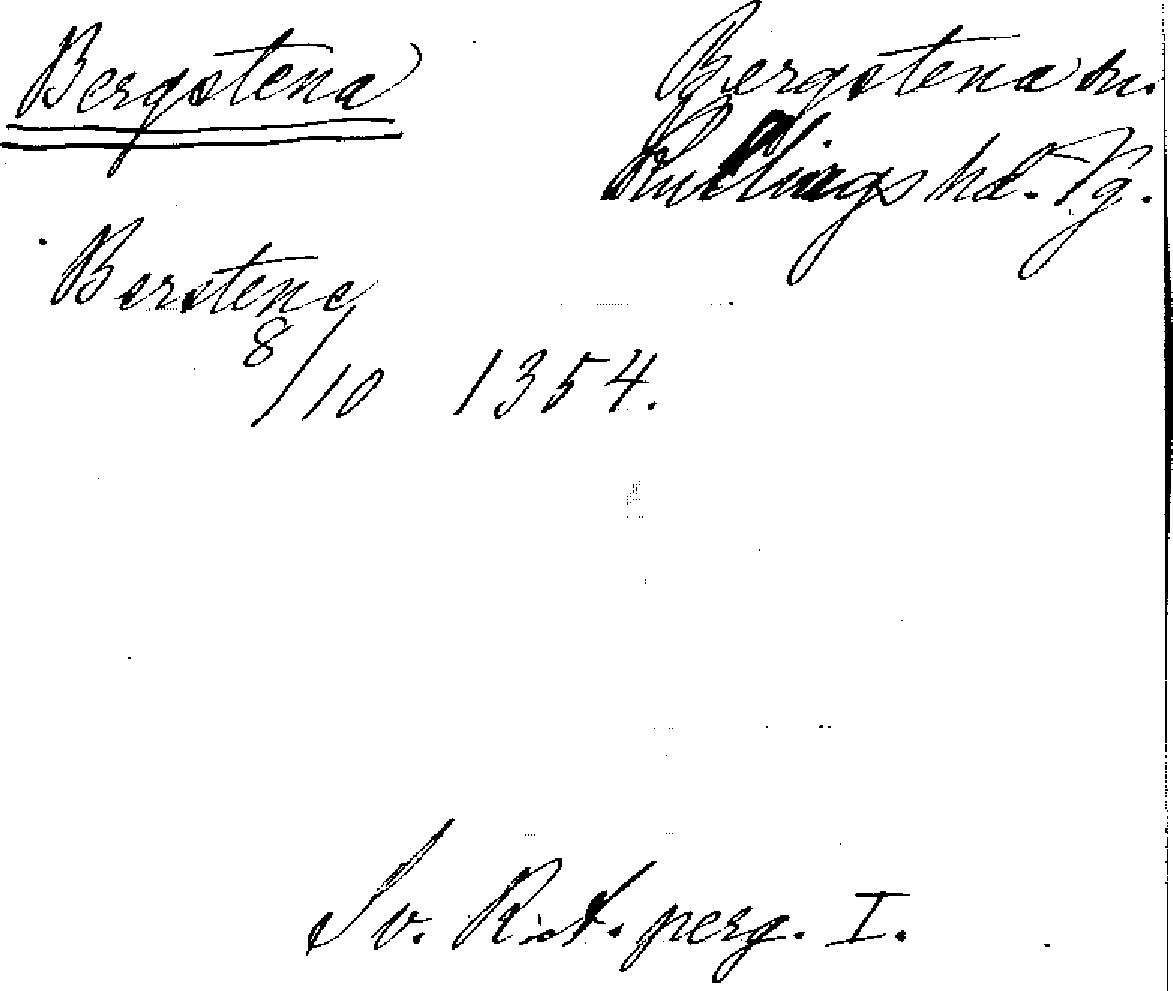 Bergstena
Bergstena sn.
Kullings hd. Vg.
Berstene
8/10 1354.
Sv. R.A. perg. I.